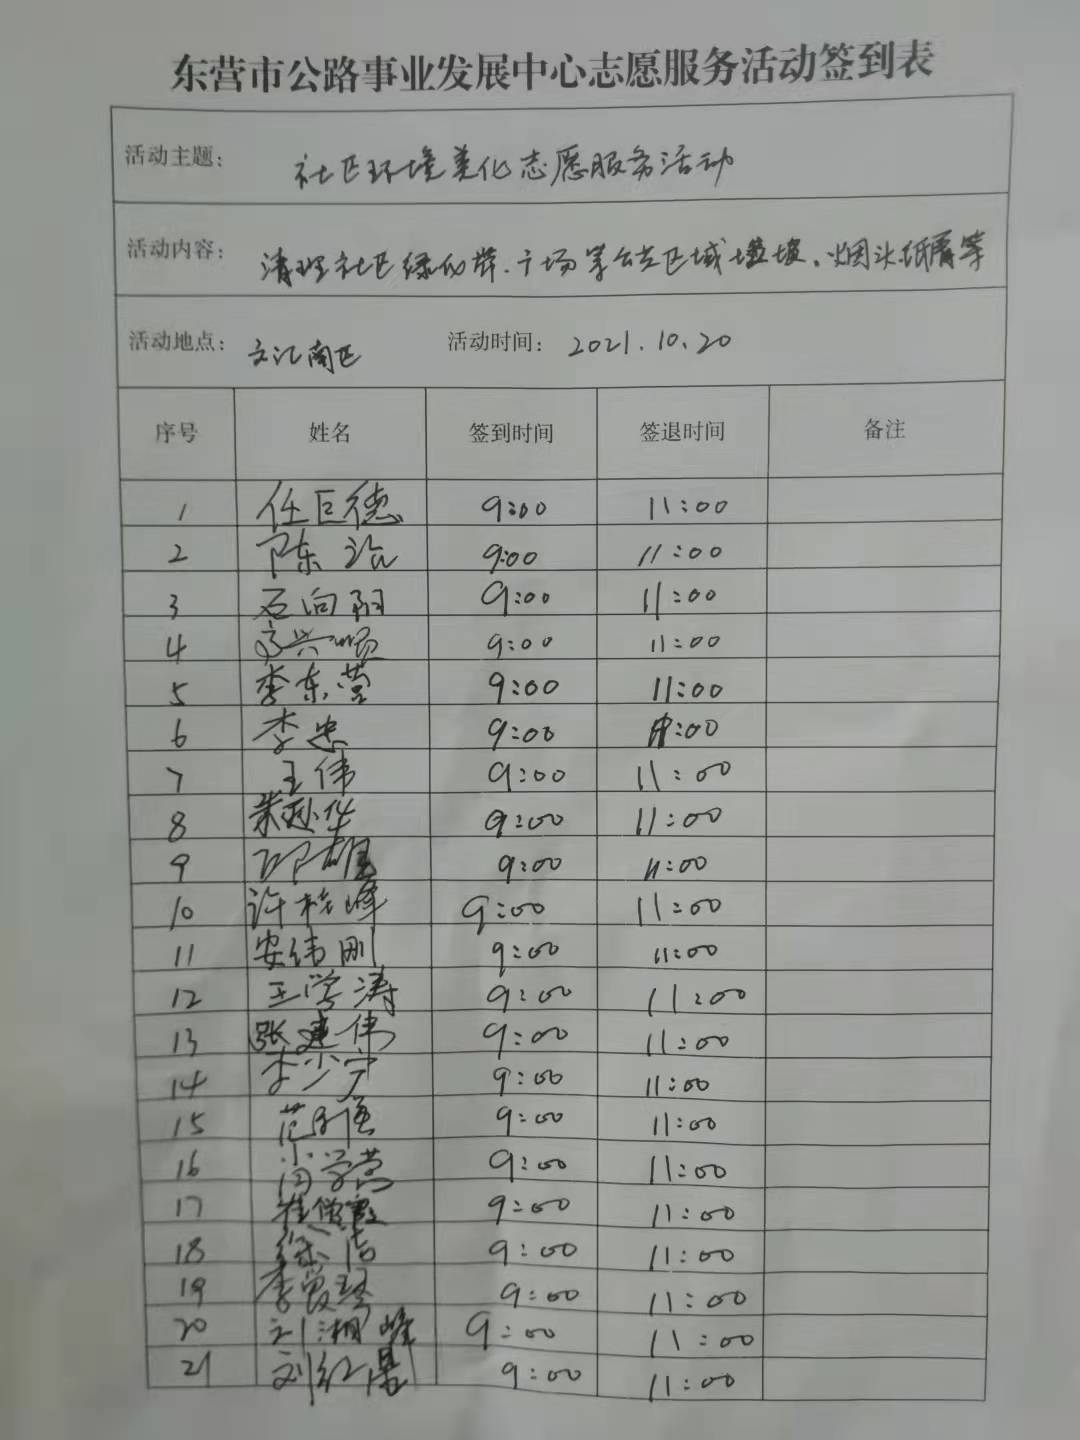 东营市公路事业发展中心志愿服务活动签到表
活动主题: 社区环境美化志愿服务活动
活动内容: 清理社区绿化带、广场等公共区域垃圾、烟头纸屑等
活动地点: 文汇南区 活动时间: 2021.10.20
序号 姓名 签到时间 签退时间 备注
1 任巨德 9:00 11:00
2 陈 9:00 11:00
3 石向阳 9:00 11:00
4 兴顺 9:00 11:00
5 李东营 9:00 11:00
6 李忠 9:00 :00
7 王伟 9:00 11:00
8 华 9:00 11:00
9 9:00 11:00
10 许 峰 9:00 11:00
11 安伟刚 9:00 11:00
12 王学涛 9:00 11:00
13 张建伟 9:00 11:00
14 李少宁 9:00 11:00
15 范 9:00 11:00
16 学营 9:00 11:00
17 崔 霞 9:00 11:00
18 徐洁 9:00 11:00
19 李 9:00 11:00
20 刘湘峰 9:00 11:00
21 刘红 9:00 11:00